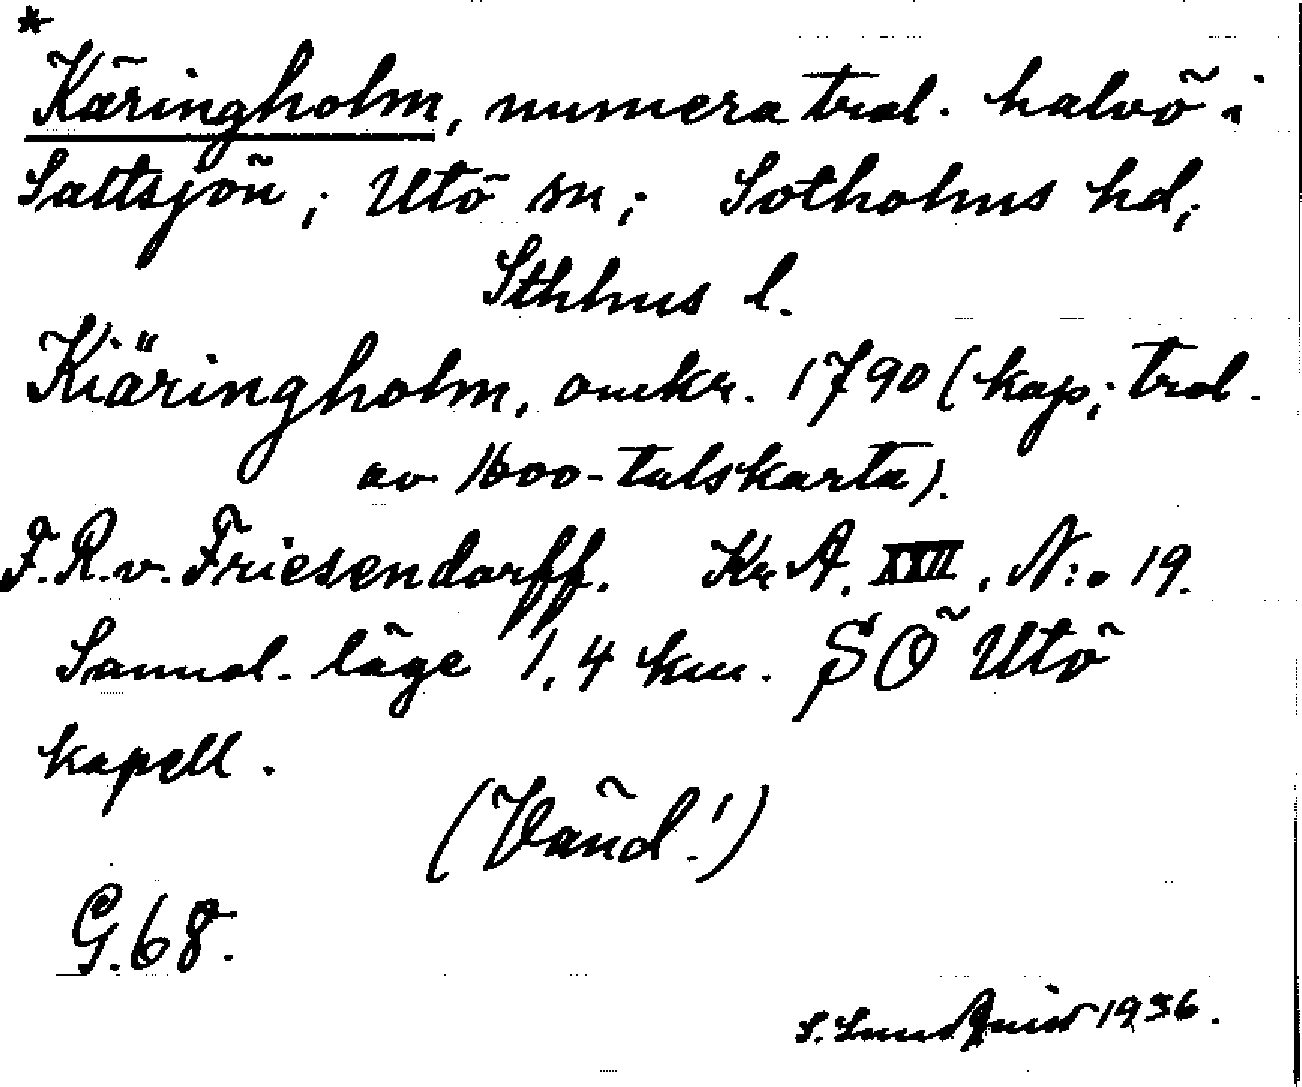 *
Käringholm, numera trol. halvö i
Saltsjön; Utö sn; Sotholms hd;
Sthlms l.
Kiäringholm, omkr. 1790 (kop; trol.
av 1600-talskarta).
F.R.v. Friesendorff. Kr A. XXII, N:o 19.
Sannol. läge 1,4 km. SÖ Utö
kapell.
(Vänd!)
G.68.
S. Lundquist 1936.